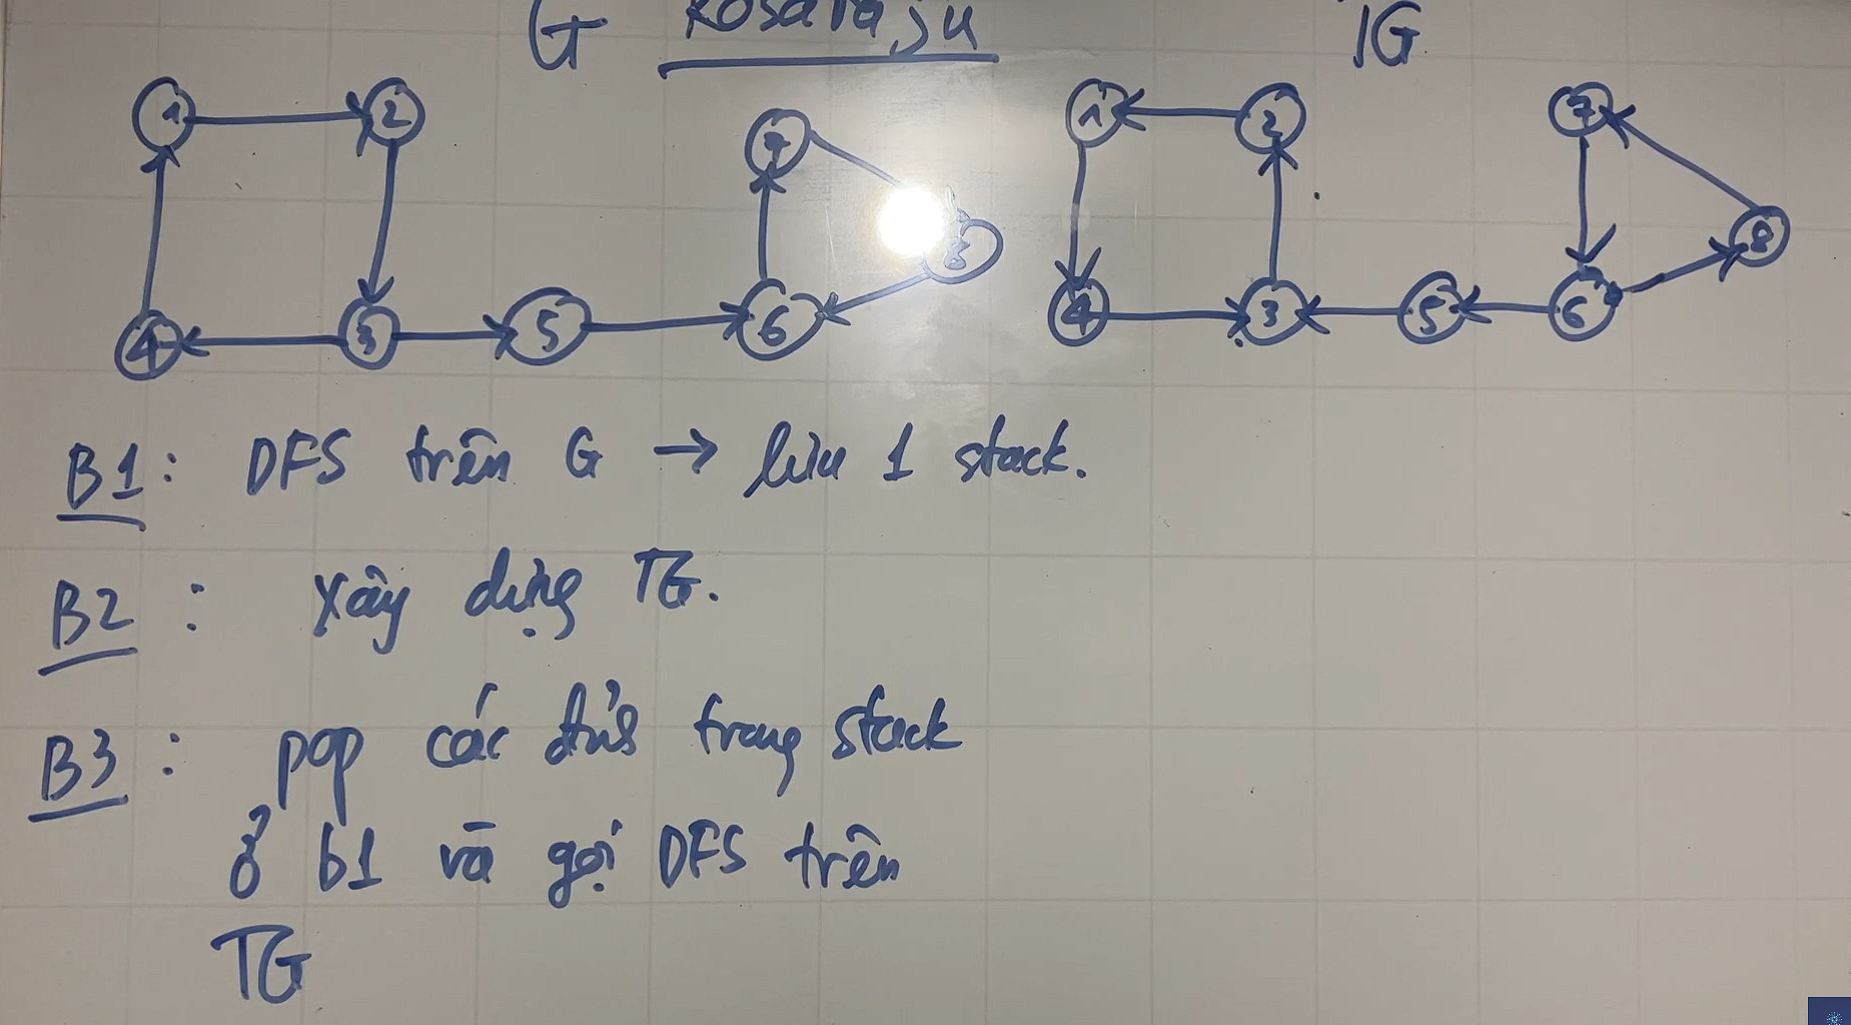 G Kosaraju TG
1 2 7 1 2 7
8 8
4 3 5 6 4 3 5 6
B1: DFS trên G → lưu 1 stack.
B2: Xây dựng TG.
B3: pop các đỉnh trong stack
ở b1 và gọi DFS trên
TG